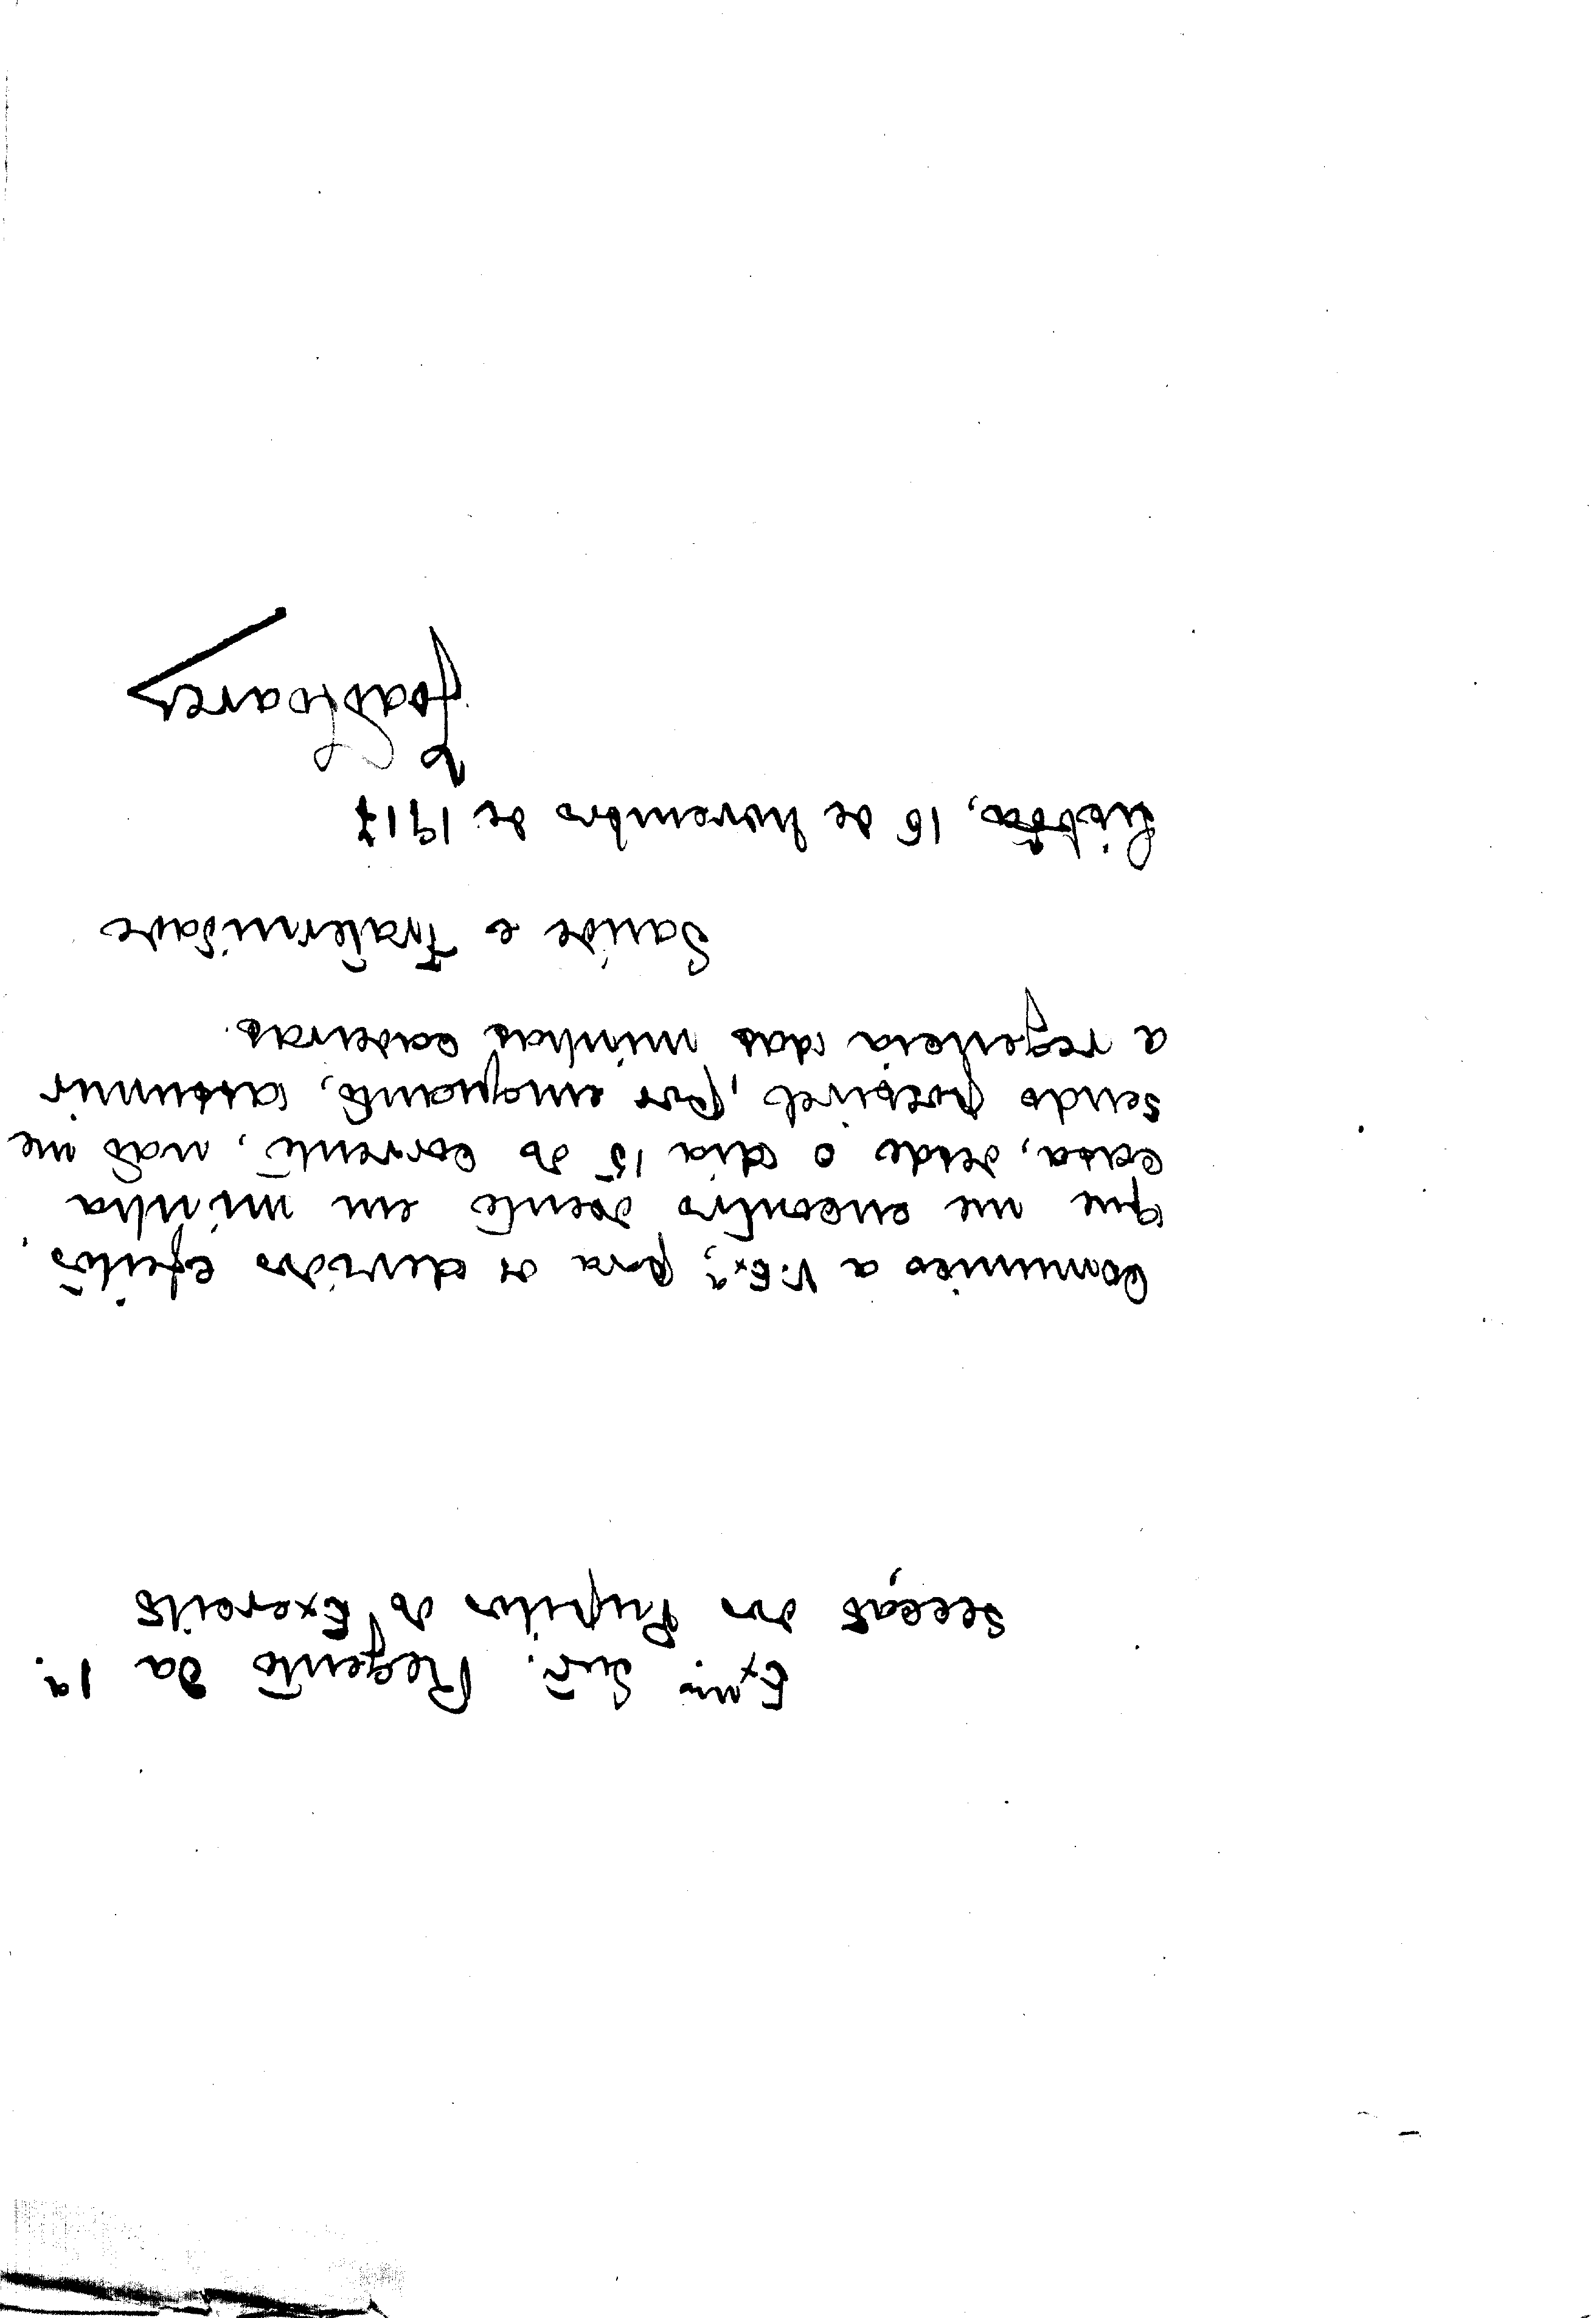 Exmº Snr. Regente da 1ª
Secção dos Pupilos do Exercito
Comunico a V. Exª, para os devidos efeitos,
que me encontro doente em minha
casa, desde o dia 15 do corrente, não me
sendo possivel, por emquanto, assumir
a regencia das minhas cadeiras.
Saúde e Fraternidade
Lisbôa, 16 de Novembro de 1917
João Soares